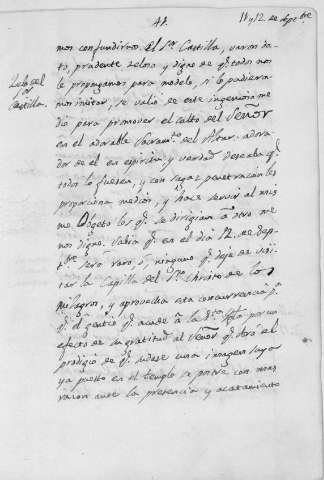 41.
11 y 12 de Sepbre
mos confundirnos. El Sr. Castilla, varon do-
to, prudente zeloso y digno de qe. todos nos
Zelo del
Sr.
Castilla.
le propongamos para modelo, si le pudiera-
mos imitar, se valio de este ingenioso me
dio para promover el culto del Señor
en el adorable Sacramto. del Altar. adora-
dor de el en espiritu y verdad deseaba qe.
todos lo fuesen, y con sagaz penetracion les
proporciona medios, y hace servir al mis
mo Objeto los qe. se dirigian a otro me
nos digno. Sabia qe. en el dia 12 de Sep-
bre. sera raro o ninguno qe. deje de visi
tar la Capilla del Sto. Christo de los
Milagros, y aprovecha esta concurrencia pa.
qe. el gentio qe. acude a la
efecto de ingratitud al Señor qe. obro el
prodigio de qe. sudase una imagen suya
ya puesto en el templo se postre con mas
racion ante la presencia y acatamiento